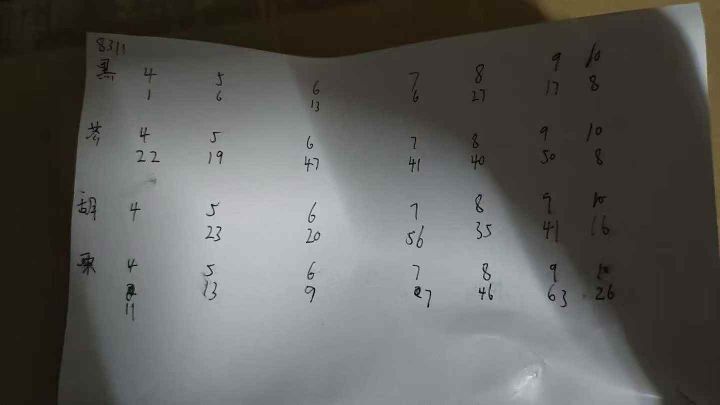 8311
黑 4 5 6 7 8 9 10
1 6 13 6 27 17 8
4 5 6 7 8 9 10
22 19 47 41 40 50 8
胡 4 5 6 7 8 9 10
23 20 56 35 41 16
栗 4 5 6 7 8 9 10
13 9 27 46 63 26
11